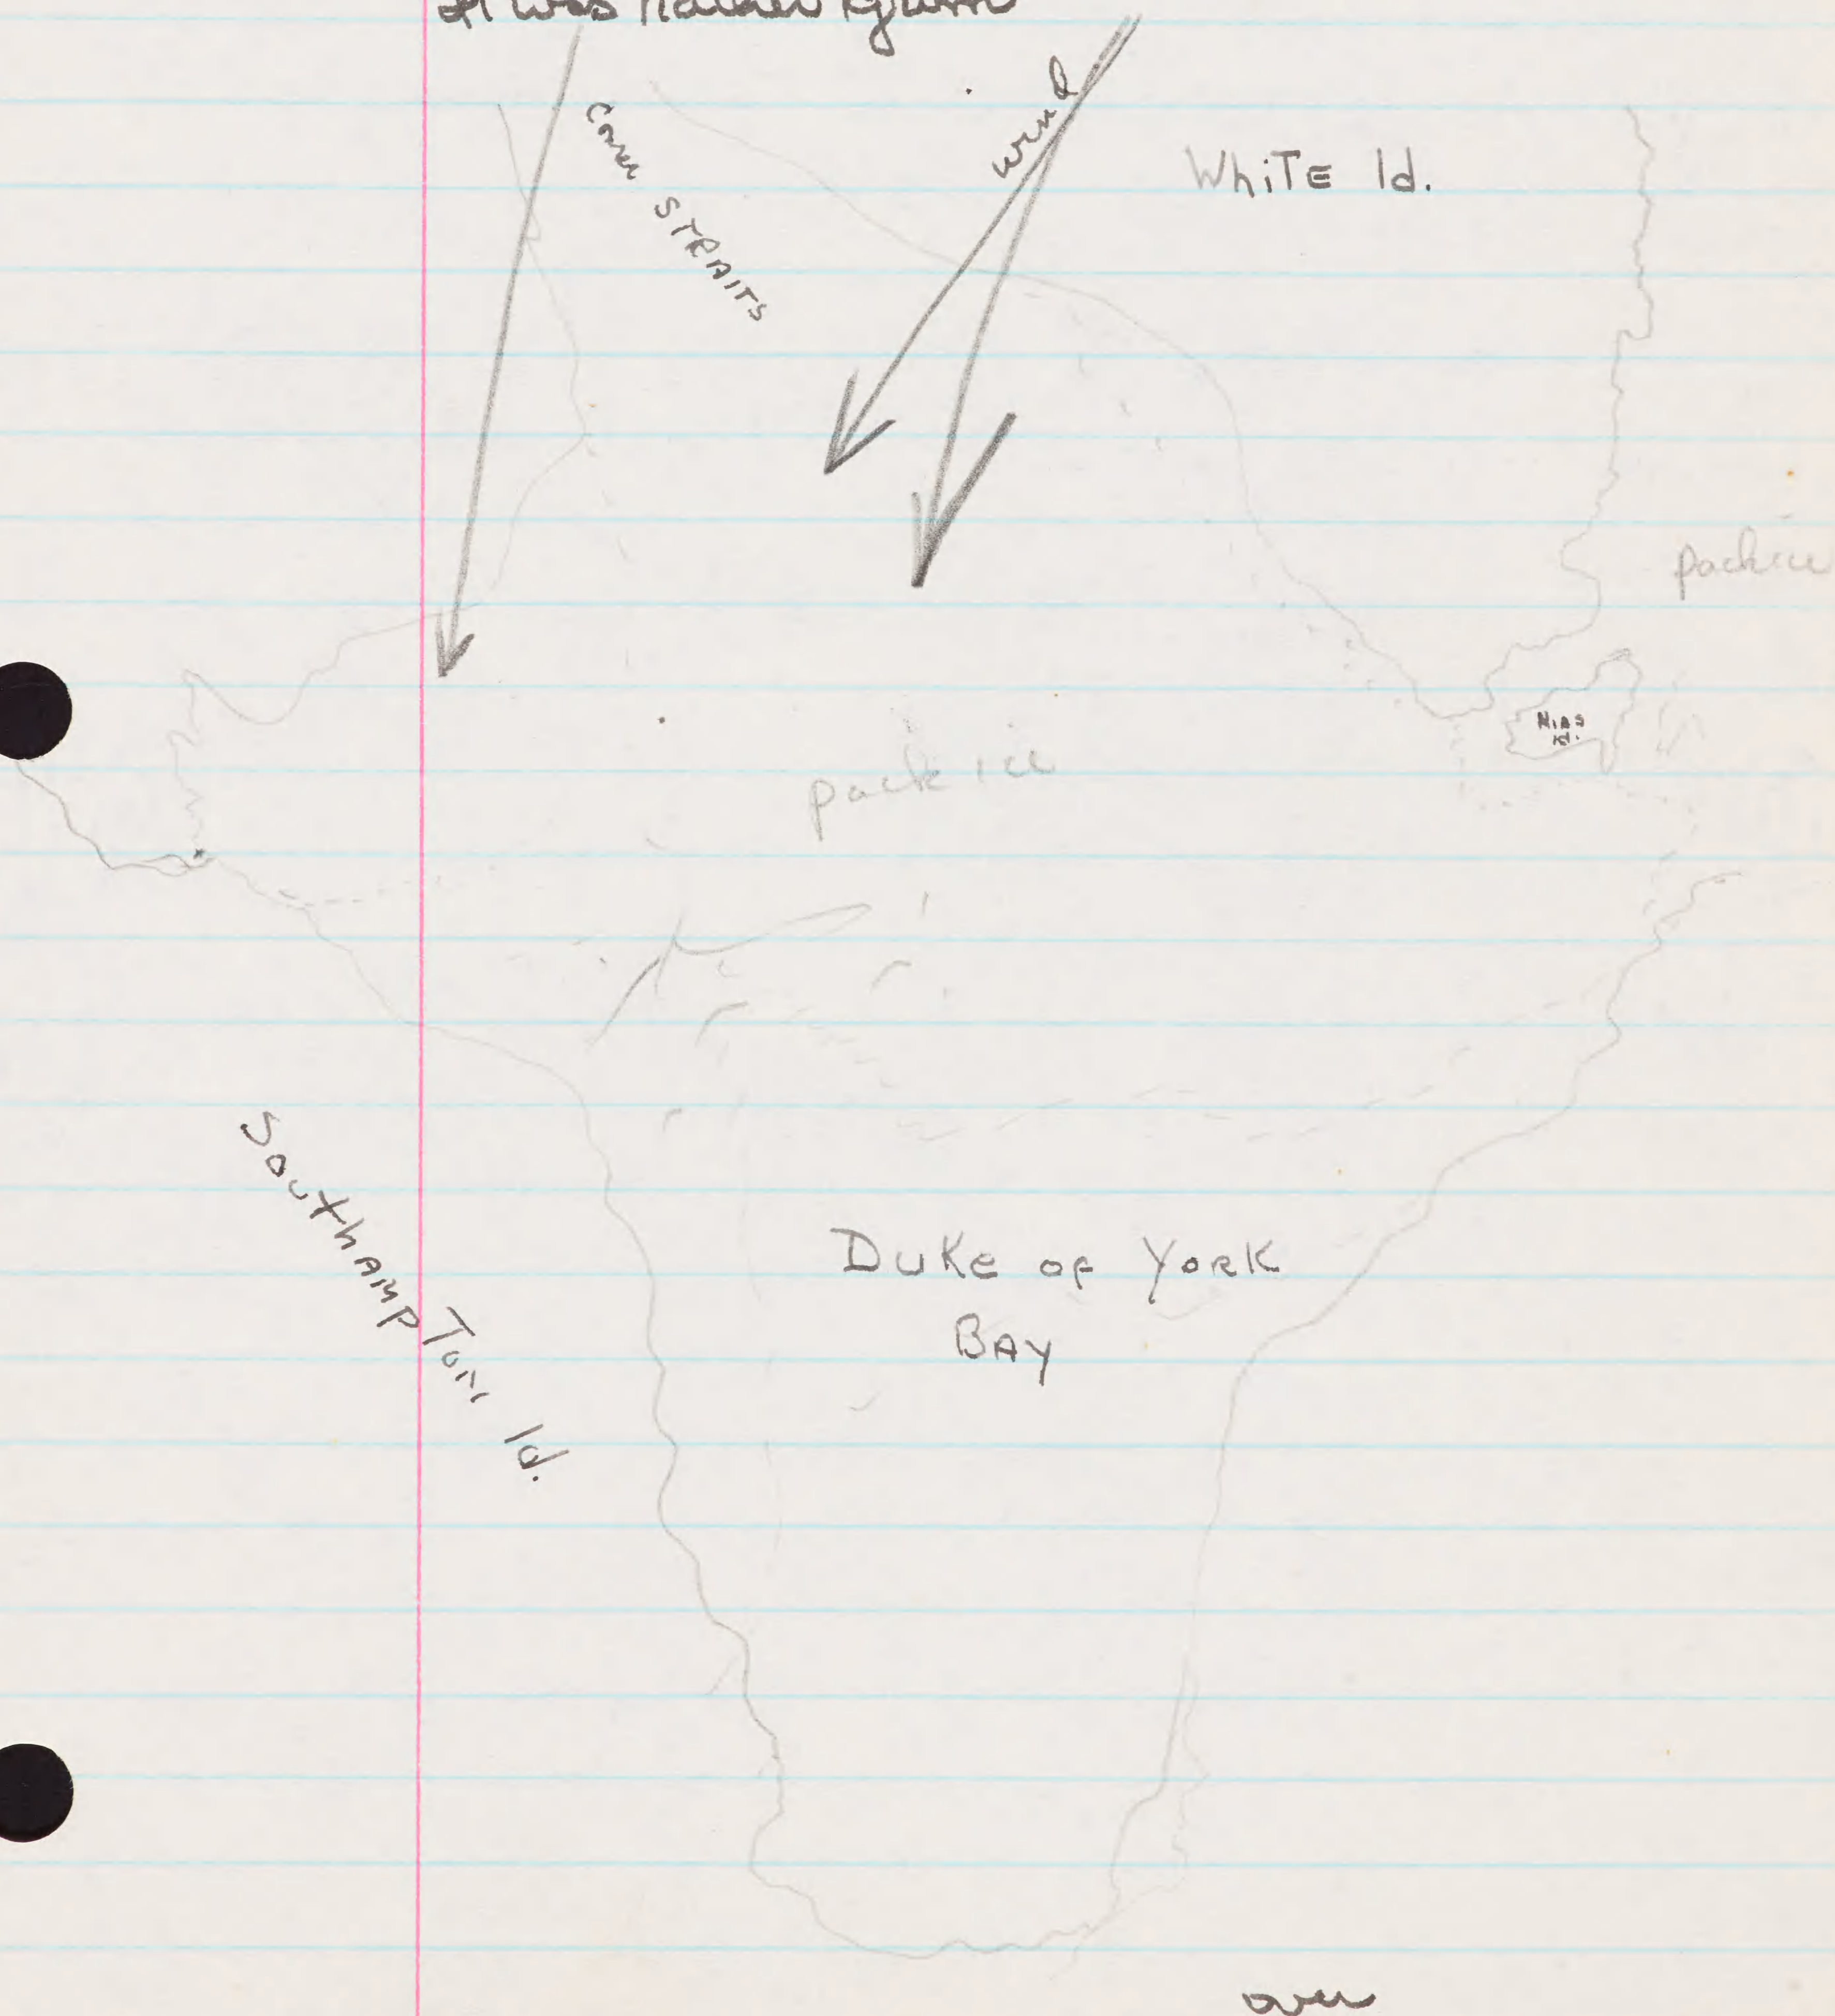 It was rather grim
Comer STRAITS
wind
WhiTE Id.
pack ice
Nias
Id.
pack ice
SouthAmpTon Id.
Duke of York
BAy
over